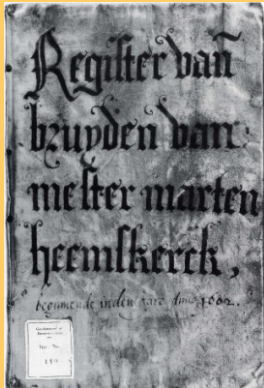 Register van̄
bruyden van
meſter marten
heemſkerck,
begñnende inden jare